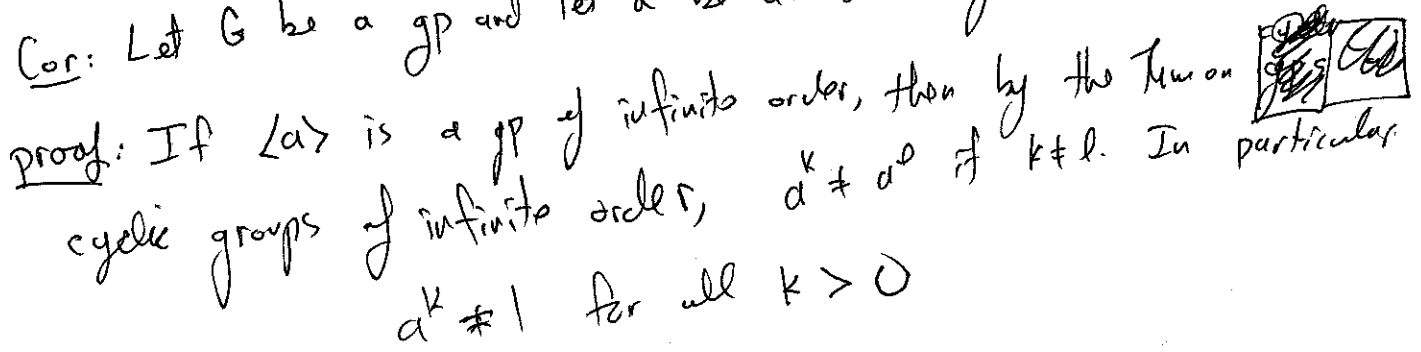 Cor: Let G be a gp and let a
proof: If <a> is a gp of infinite order, then by the Thm on
cyclic groups of infinite order, a^k ≠ a^l if k ≠ l. In particular
a^k ≠ 1 for all k > 0